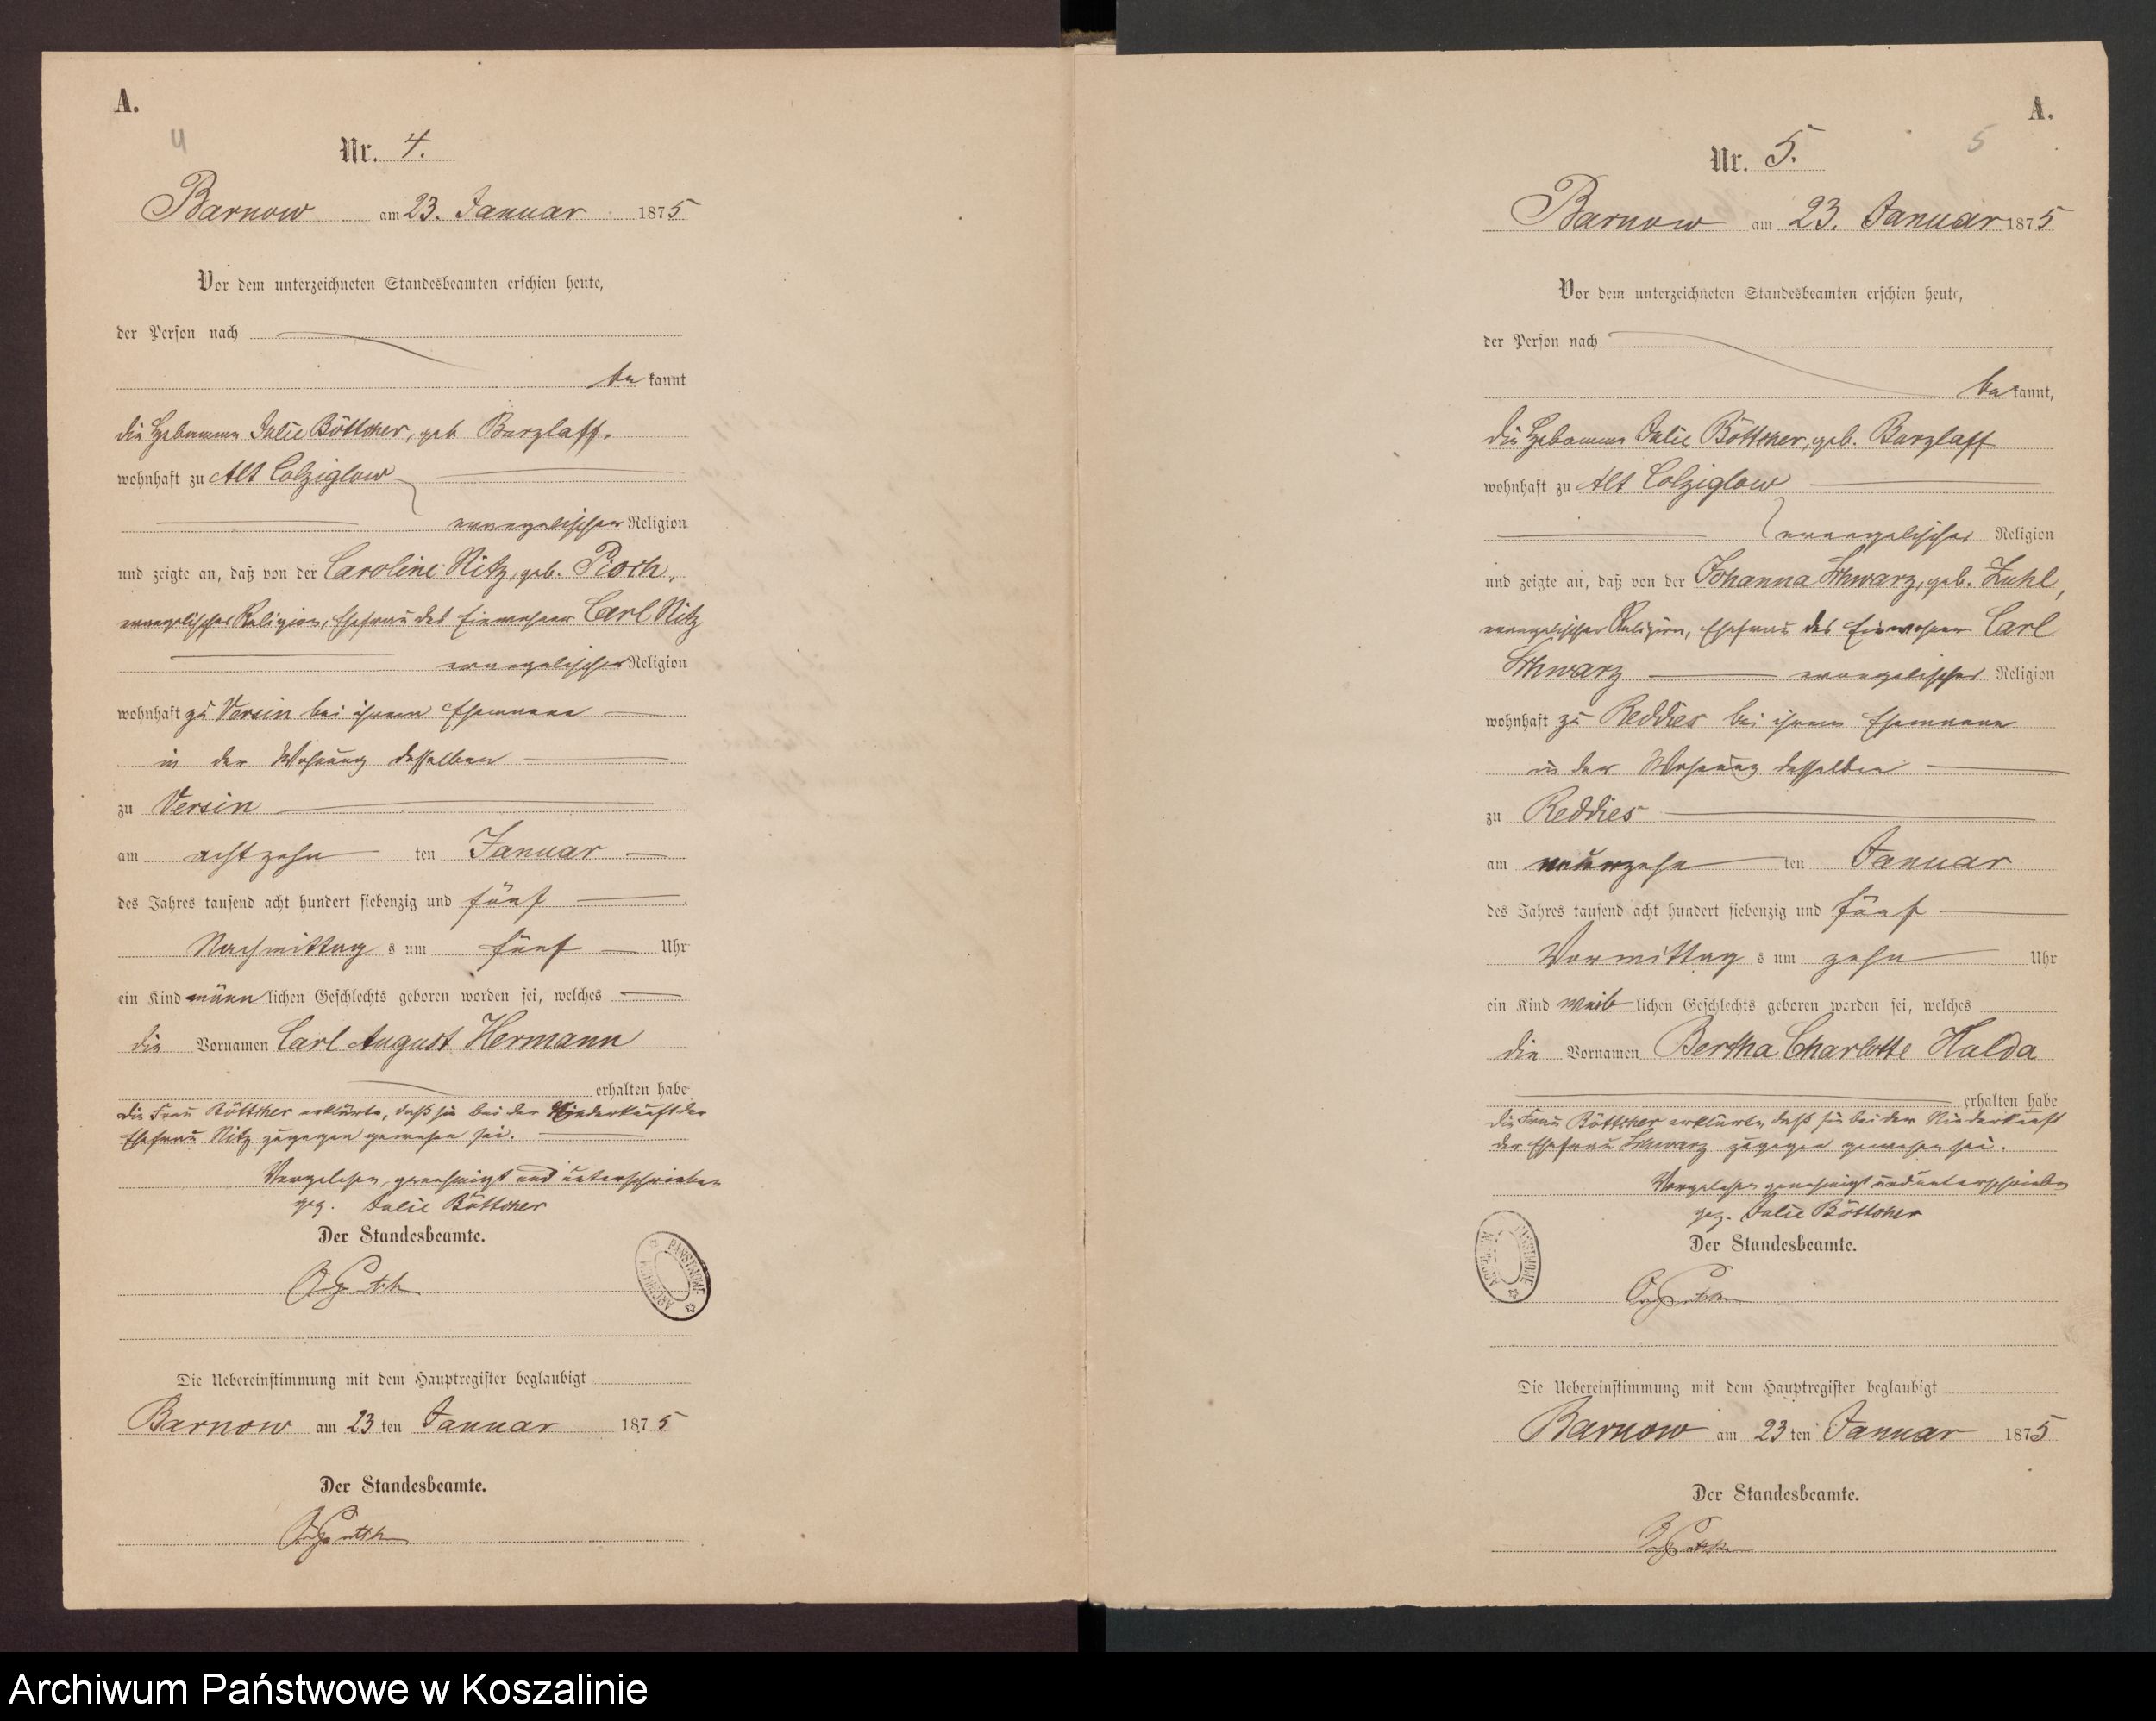 A.
4
Nr. 4.
Barnow am 23. Januar 1875
Vor dem unterzeichneten Standesbeamten erschien heute,
der Person nach
be kannt
die Hebamme Julie Böttcher, geb Barzlaff.
wohnhaft zu Alt Colziglow
evangelischer Religion
und zeigte an, daß von der Caroline Nitz, geb. Pioch,
evangelischer Religion, Ehefrau des Einwohner Carl Nitz
evangelischer Religion
wohnhaft zu Versin bei ihrem Ehemanne
in der Wohnung desselben
zu Versin
am achtzehn ten Januar
des Jahres tausend acht hundert siebenzig und fünf
Nachmittag s um fünf Uhr
ein Kind männ lichen Geschlechts geboren worden sei, welches
die Vornamen Carl August Hermann
erhalten habe
die Frau Böttcher erklärte, daß sie bei der Niederkunft der
Ehefrau Nitz zugegen gewesen sei.
Vorgelesen, genehmigt und unterschrieben
gez. Julie Böttcher
Der Standesbeamte.
Die Uebereinstimmung mit dem Hauptregister beglaubigt
Barnow am 23 ten Januar 1875
Der Standesbeamte.
A.
5
Nr. 5.
Barnow am 23. Januar 1875
Vor dem unterzeichneten Standesbeamten erschien heute,
der Person nach
be kannt,
die Hebamme Julie Böttcher, geb. Barzlaff
wohnhaft zu Alt Colziglow
evangelischer Religion
und zeigte an, daß von der Johanna Schwarz, geb. Zuhl,
evangelischer Religion, Ehefrau des Einwohner Carl
Schwarz evangelischer Religion
wohnhaft zu Reddies bei ihrem Ehemanne
in der Wohnung desselben
zu Reddies
am neunzehn ten Januar
des Jahres tausend acht hundert siebenzig und fünf
Vormittag s um zehn Uhr
ein Kind weib lichen Geschlechts geboren worden sei, welches
die Vornamen Bertha Charlotte Hulda
erhalten habe
die Frau Böttcher erklärte, daß sie bei der Niederkunft
der Ehefrau Schwarz zugegen gewesen sei.
Vorgelesen genehmigt und unterschrieben
gez. Julie Böttcher
Der Standesbeamte.
Die Uebereinstimmung mit dem Hauptregister beglaubigt
Barnow am 23 ten Januar 1875
Der Standesbeamte.
Archiwum Państwowe w Koszalinie